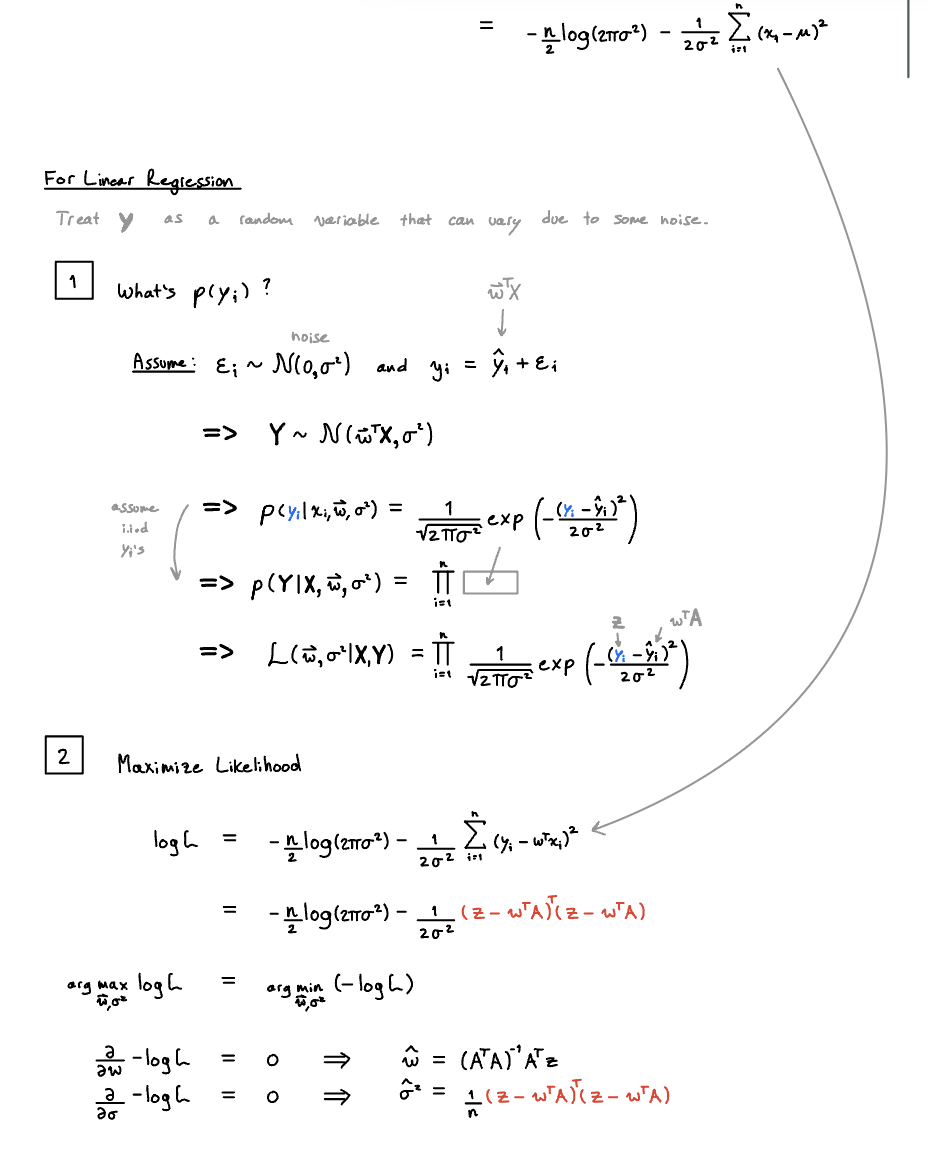 = -n/2 log(2πσ²) - 1/2σ² Σ_{i=1}^{n} (x₁ - μ)²
For Linear Regression
Treat Y as a random variable that can vary due to some noise.
1 What's p(yᵢ) ?
w⃗ᵀX
noise
Assume: εᵢ ~ N(0,σ²) and yᵢ = ŷ₁ + εᵢ
=> Y ~ N(w⃗ᵀX, σ²)
=> p(yᵢ|xᵢ, w⃗, σ²) = 1/√(2πσ²) exp(-(yᵢ - ŷᵢ)²/2σ²)
assume
i.i.d
yᵢ's
=> p(Y|X, w⃗, σ²) = ∏_{i=1}^{n}
z wᵀA
=> L(w⃗, σ²|X,Y) = ∏_{i=1}^{n} 1/√(2πσ²) exp(-(yᵢ - ŷᵢ)²/2σ²)
2 Maximize Likelihood
log L = -n/2 log(2πσ²) - 1/2σ² Σ_{i=1}^{n} (yᵢ - wᵀxᵢ)²
= -n/2 log(2πσ²) - 1/2σ² (z - wᵀA)ᵀ(z - wᵀA)
arg max_{w⃗,σ²} log L = arg min_{w⃗,σ²} (-log L)
∂/∂w -log L = 0 ⇒ ŵ = (AᵀA)⁻¹Aᵀz
∂/∂σ -log L = 0 ⇒ σ̂² = 1/n (z - wᵀA)ᵀ(z - wᵀA)